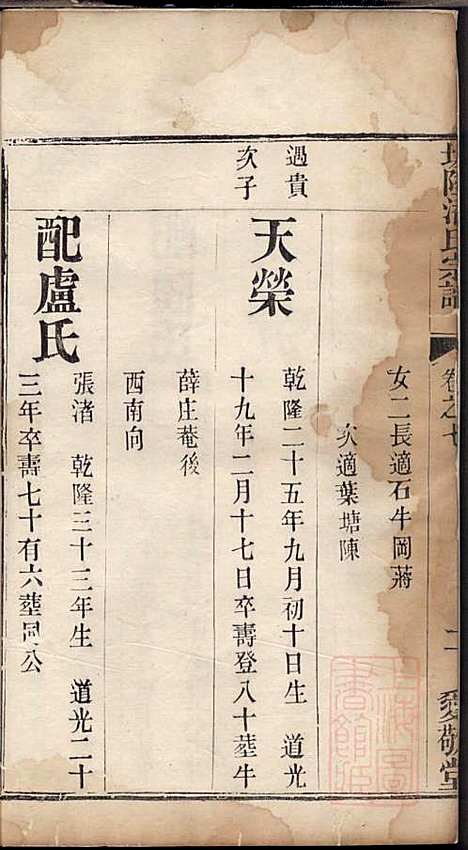 氏宗譜
卷之七
二
愛敬堂
女二長適石牛岡蔣
次適葉塘陳
遇貴
次子
天榮
乾隆二十五年九月初十日生 道光
十九年二月十七日卒壽登八十塟牛
薛庄菴後
西南向
配盧氏
張渚 乾隆三十三年生 道光二十
三年卒壽七十有六塟同公